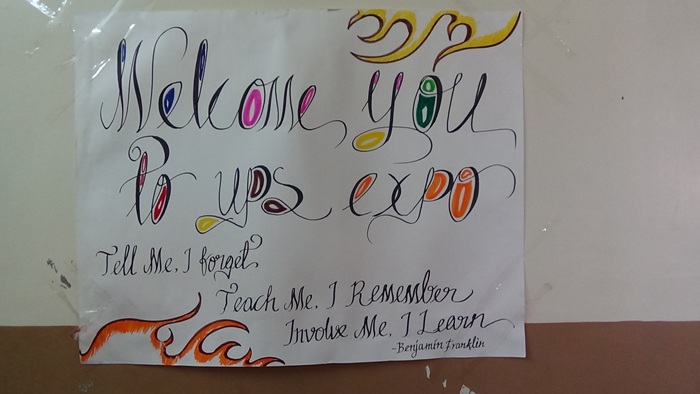 Welcome you
to yps expo
Tell Me, I forget
Teach Me, I Remember
Involve Me, I Learn
-Benjamin Franklin